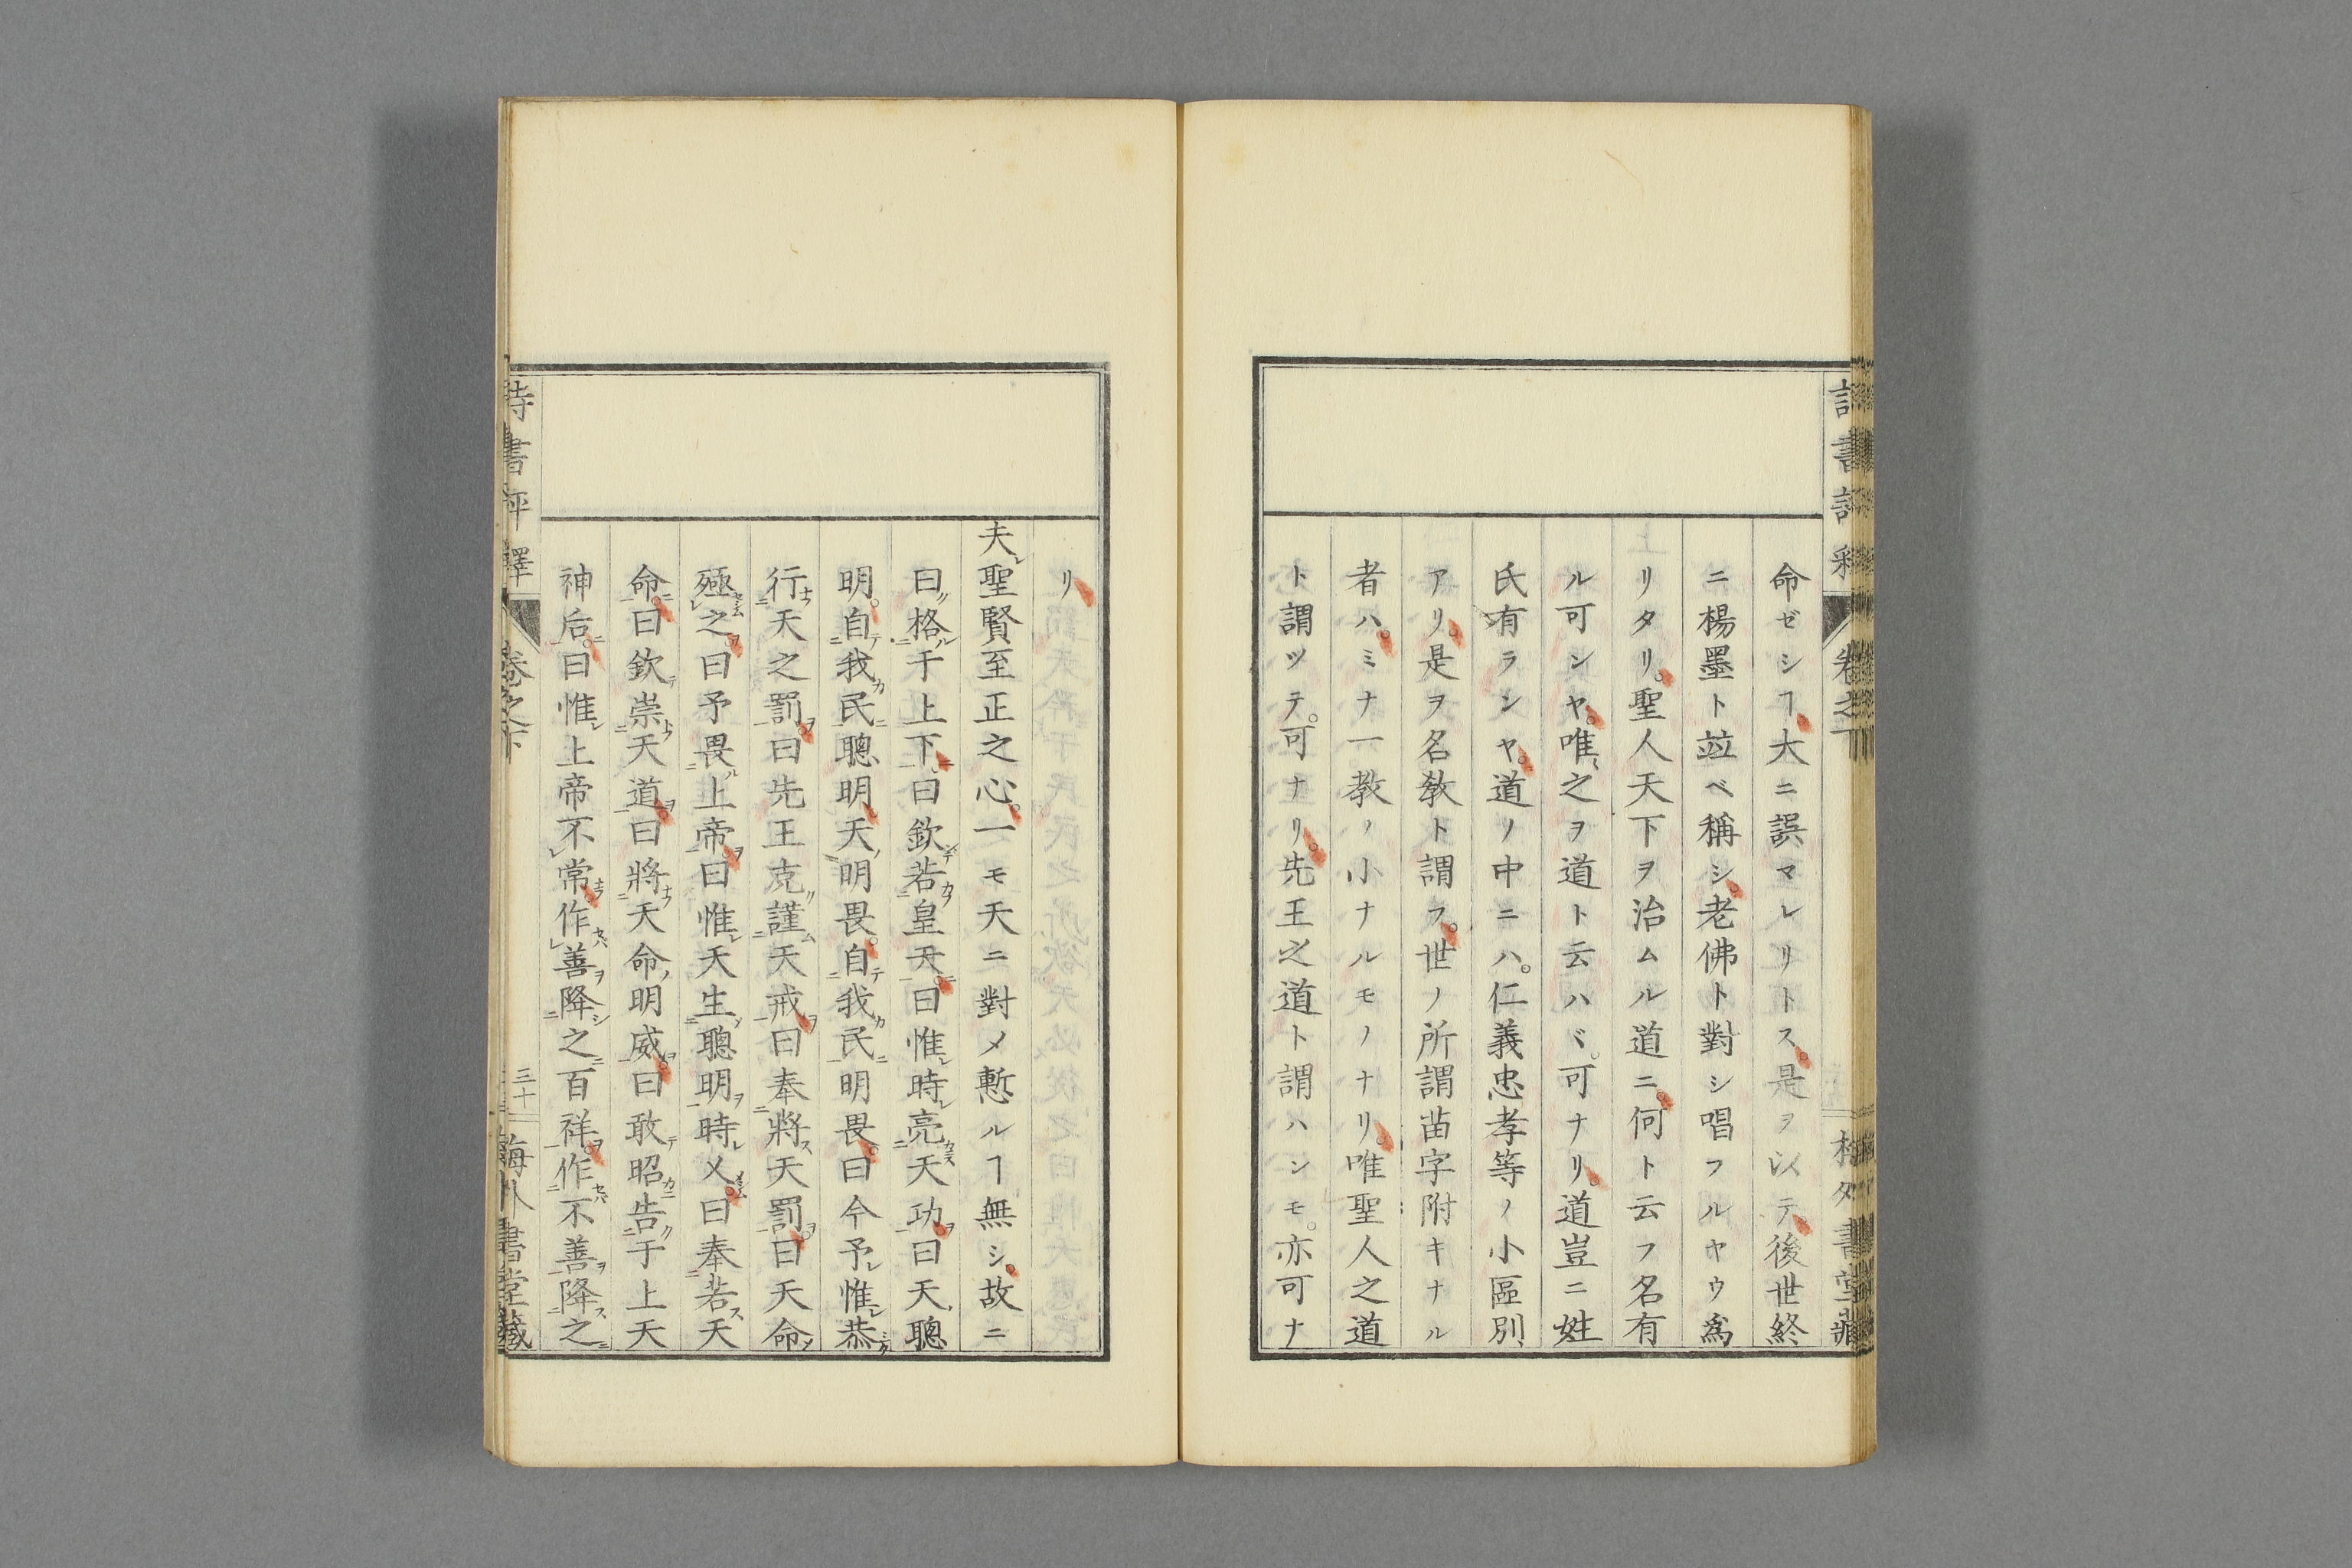 命ゼシヿ大ニ誤マレリトス。是ヲ以テ後世終
ニ楊墨ト竝ベ稱シ。老佛ト對シ唱フルヤウ爲
リタリ。聖人天下ヲ治ムル道ニ。何ト云フ名有
ル可ンヤ。唯之ヲ道ト云ハバ。可ナリ。道豈ニ姓
氏有ランヤ。道ノ中ニハ。仁義忠孝等ノ小區別
アリ。是ヲ名敎ト謂フ。世ノ所謂苗字附キナル
者ハ。ミナ一教ノ小ナルモノナリ。唯聖人之道
ト謂ツテ。可ナリ。先王之道ト謂ハンモ。亦可ナ
リ
夫聖賢至正之心。一モ天ニ對メ慙ルヿ無シ。故ニ
曰格于上下。曰欽若皇天。曰惟時亮天功。曰天聰
明。自我民聰明。天明畏。自我民明畏。曰今予惟恭
行天之罰。曰先王克謹天戒。曰奉將天罰。曰天命
殛之。曰予畏上帝。曰惟天生聰明時乂。曰奉若天
命。曰欽崇天道。曰將天命明威。曰敢昭告于上天
神后。曰惟上帝不常。作善降之百祥。作不善降之
詩書評釋
卷之下
三十
梅外書堂藏